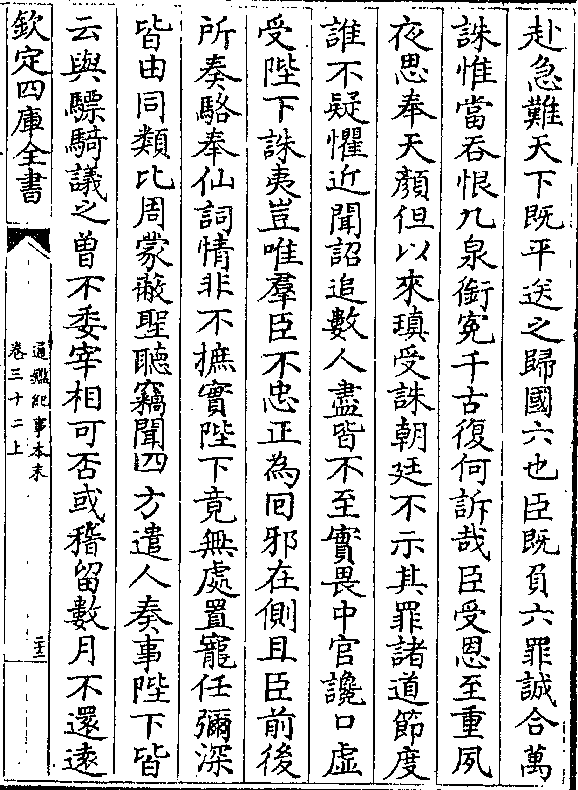 赴急難天下既平送之歸國六也臣既負六罪誠合萬
誅惟當吞恨九泉銜寃千古復何訴哉臣受恩至重夙
夜思奉天顔但以來瑱受誅朝廷不示其罪諸道節度
誰不疑懼近聞詔追數人盡皆不至實畏中官讒口虛
受陛下誅夷豈唯羣臣不忠正為回邪在側且臣前後
所奏駱奉仙詞情非不摭實陛下竟無處置寵任彌深
皆由同類比周蒙蔽聖聽竊聞四方遣人奏事陛下皆
云與驃騎議之曾不委宰相可否或稽留數月不還遠
欽定四庫全書
通鑑紀事本末
卷三十二上